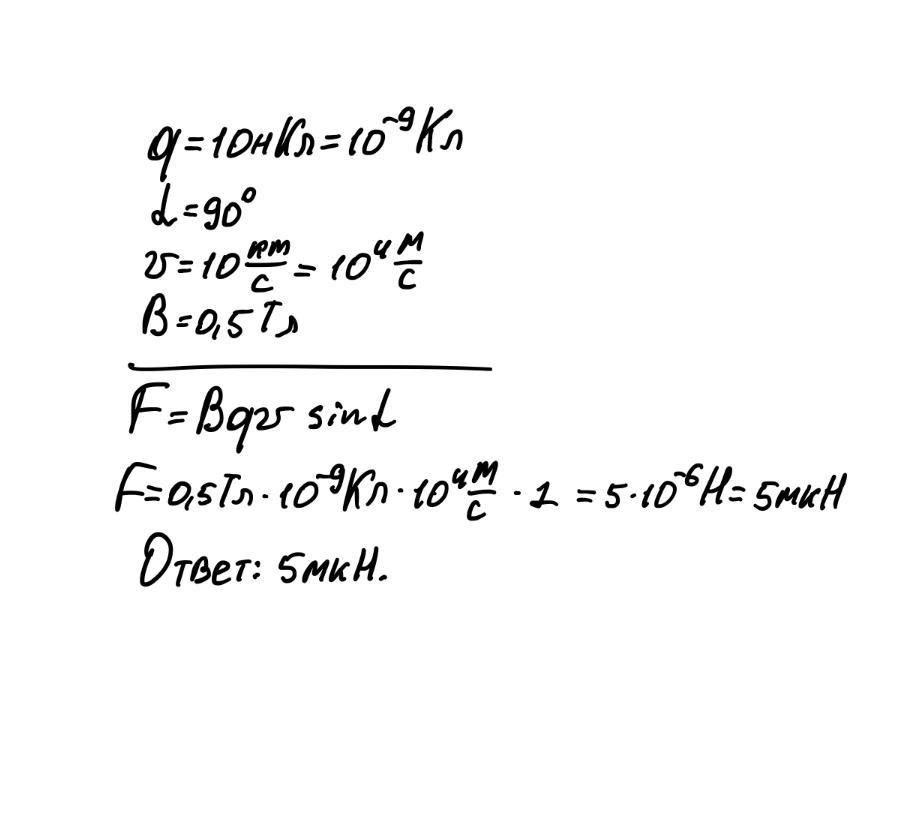 q=10нКл=10⁻⁹Кл
α=90°
v=10 км/с = 10⁴ м/с
B=0,5Тл
F=Bqv sinα
F=0,5Тл·10⁻⁹Кл·10⁴ м/с · 1 = 5·10⁻⁶Н=5мкН
Ответ: 5мкН.